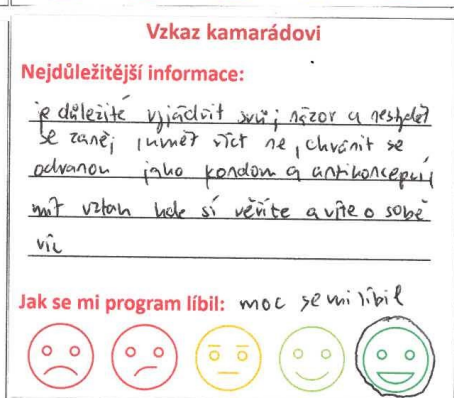 Vzkaz kamarádovi
Nejdůležitější informace:
je důležité vyjádřit svůj názor a nestydět
se zaněj, umět říct ne, chránit se
odvanou jako kondom a antikoncepcí
mít vztah kde si věříte a víte o sobě
víc
Jak se mi program líbil: moc se mi líbil